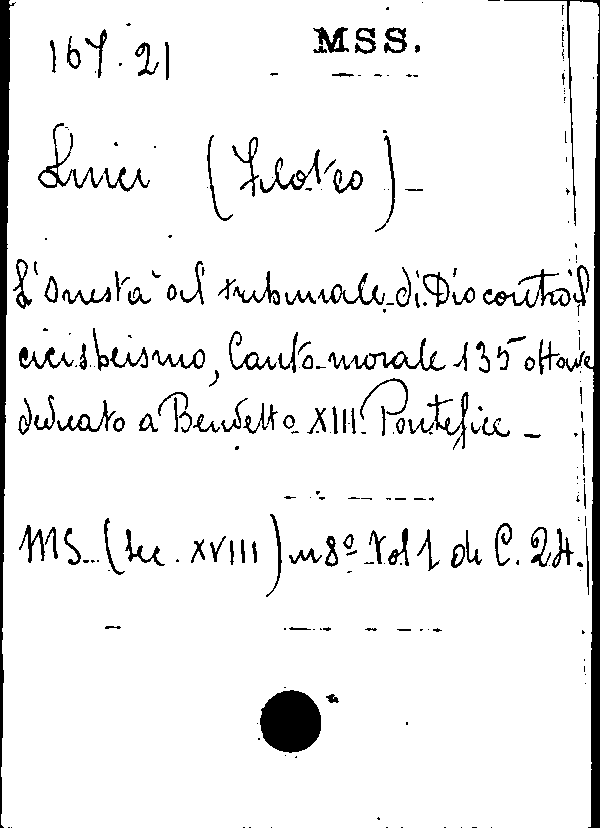 167.21
MSS.
Linici (Filoteo)
L'Onestà al tribunale di Dio contro il
cicisbeismo, Canto morale 135 ottave
dedicato a Benedetto XIII Pontefice
MS. (sec. XVIII) in 8º Vol 1 di C. 24.